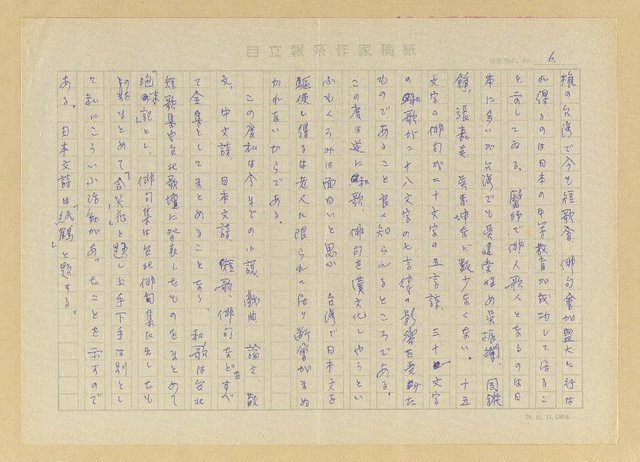 自立報系作家稿紙
6.
権の台湾で今も短歌會、俳句會が盛大に行は
れ得るのは日本の中等教育が成功して居るこ
とを示してゐる。醫師で俳人歌人となるのは日
本に多いが台湾でも呉建堂はじめ呉振蘭、周
錄、張 呉 坤など數少なくない。十五
文字の俳句が二十文字の五言詩、三十一文字
の和歌が二十八文字の七言 の影響を受けた
ものであること良く知られるところである。
この度は逆に和歌、俳句を漢文化しやうとい
ふもくろみは面白いと思ふ。台湾で日本文を
驅使し得るは老人に限られて居り 層がまぬ
かれないからである。
この度私は今までの小説、戯曲、論文、散
文、中文詩、日本文詩、短歌、俳句などをすべ
て全集としてまとめることとなり、和歌は台北
短歌集や台北歌壇に發表したものをまとめて
「泡沫記」とし、俳句集は台北俳句集に出したも
のをまとめて「 」と題し上手下手は別とし
て私にこういふ活動があったことを示すので
ある。日本文詩は「紙鶴」と題する。
79. 11. 25,000本